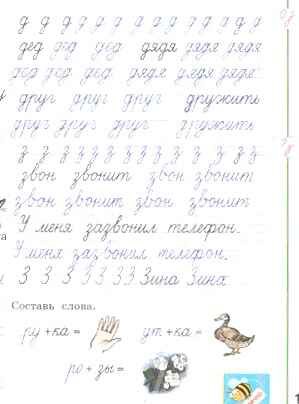 д д д д д д д д д д д д д
дед дед дед дядя дядя дядя
дед дед дед дядя дядя дядя
друг друг друг дружить
друг друг друг дружить
з з з з з з з з з з з з з
звон звонит звон звонит
звон звонит звон звонит
У меня зазвонил телефон.
У меня зазвонил телефон.
З З З З З З З Зина Зина
Составь слова.
ру + ка = ут + ка =
ро + зы =
1